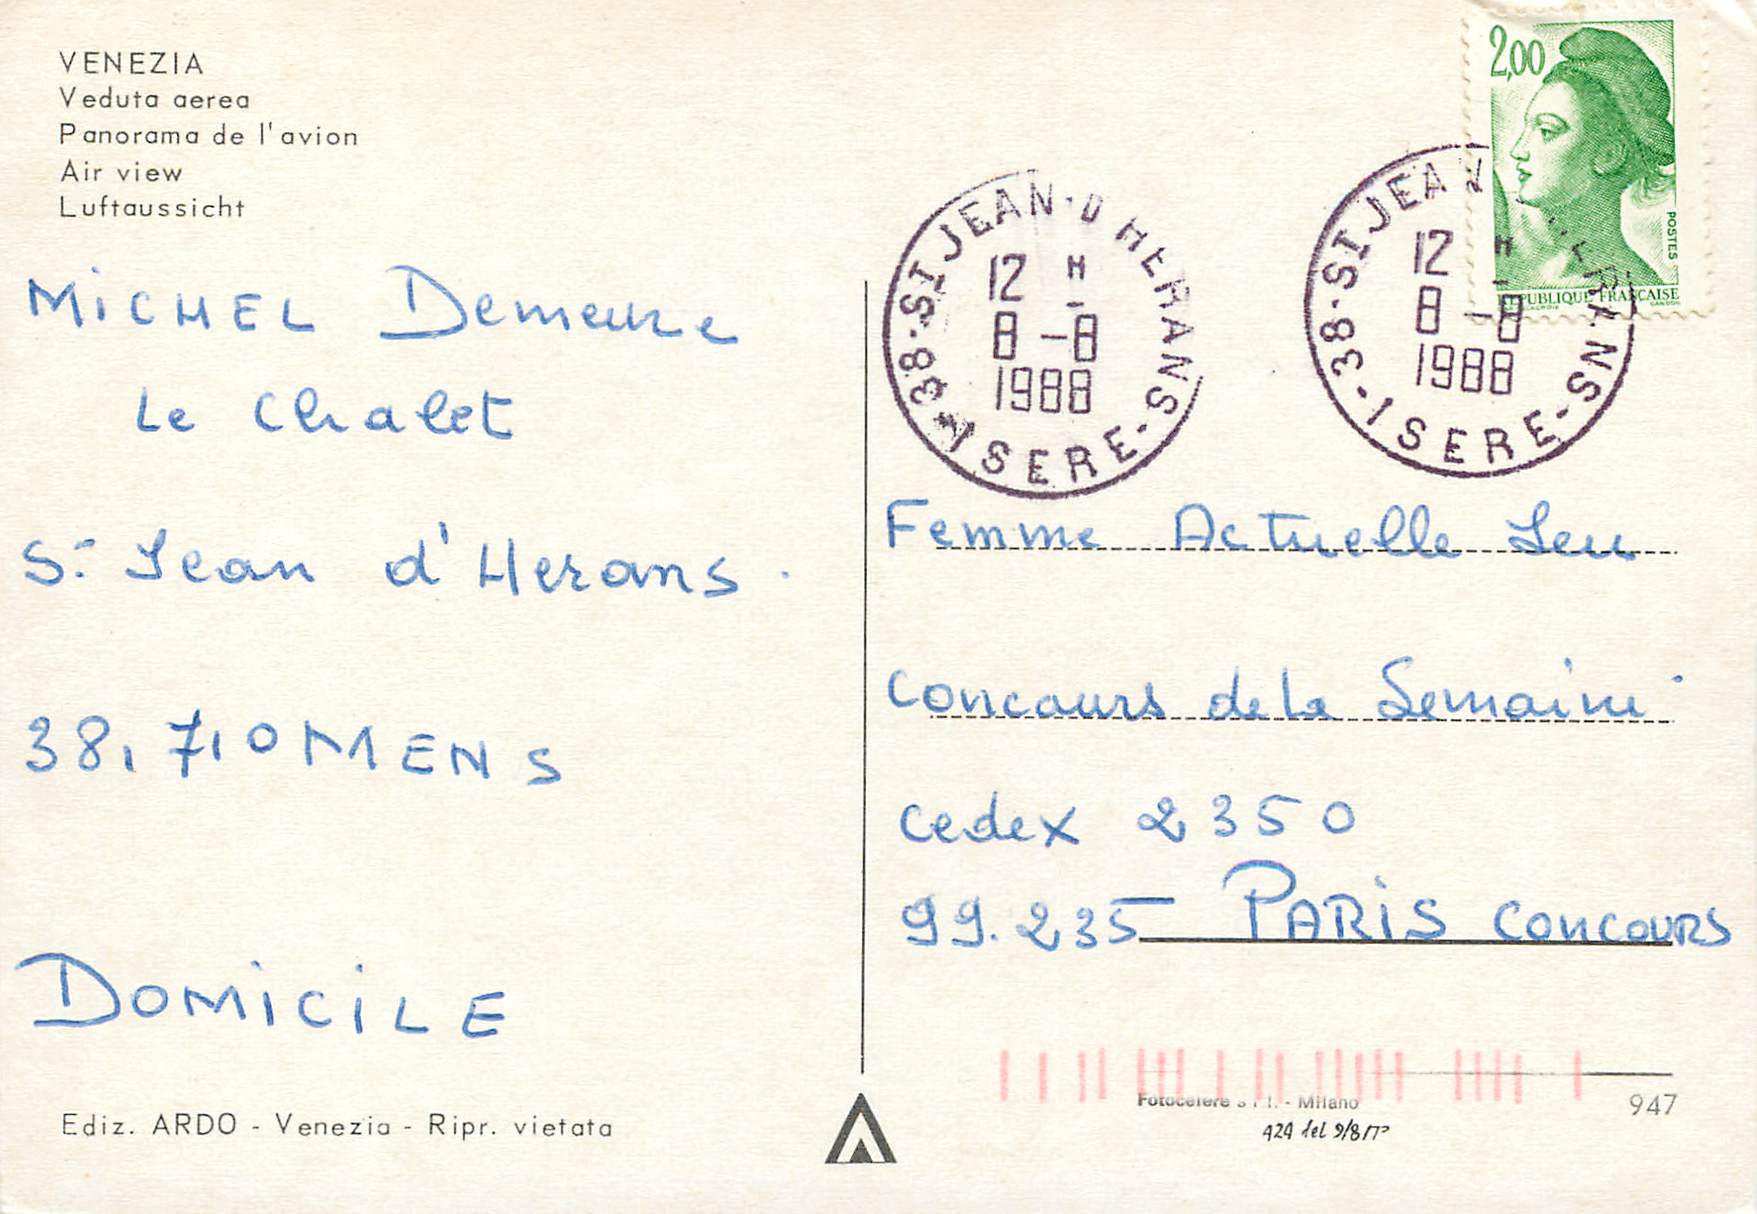 VENEZIA
Veduta aerea
Panorama de l'avion
Air view
Luftaussicht
MICHEL Demeure
Le Chalet
St Jean d'Herans.
38,710 MENS
DOMICILE
Ediz. ARDO - Venezia - Ripr. vietata
2,00
POSTES
REPUBLIQUE FRANÇAISE
GANDON
38-ST JEAN-D'HERANS-ISERE
12 H
8-8
1988
38-ST JEAN-D'HERANS-ISERE
12 H
8-8
1988
Femme Actuelle Jeu
Concours de la Semaine
Cedex 2350
99.235 PARIS CONCOURS
Fotocelere s.r.l. - Milano
947